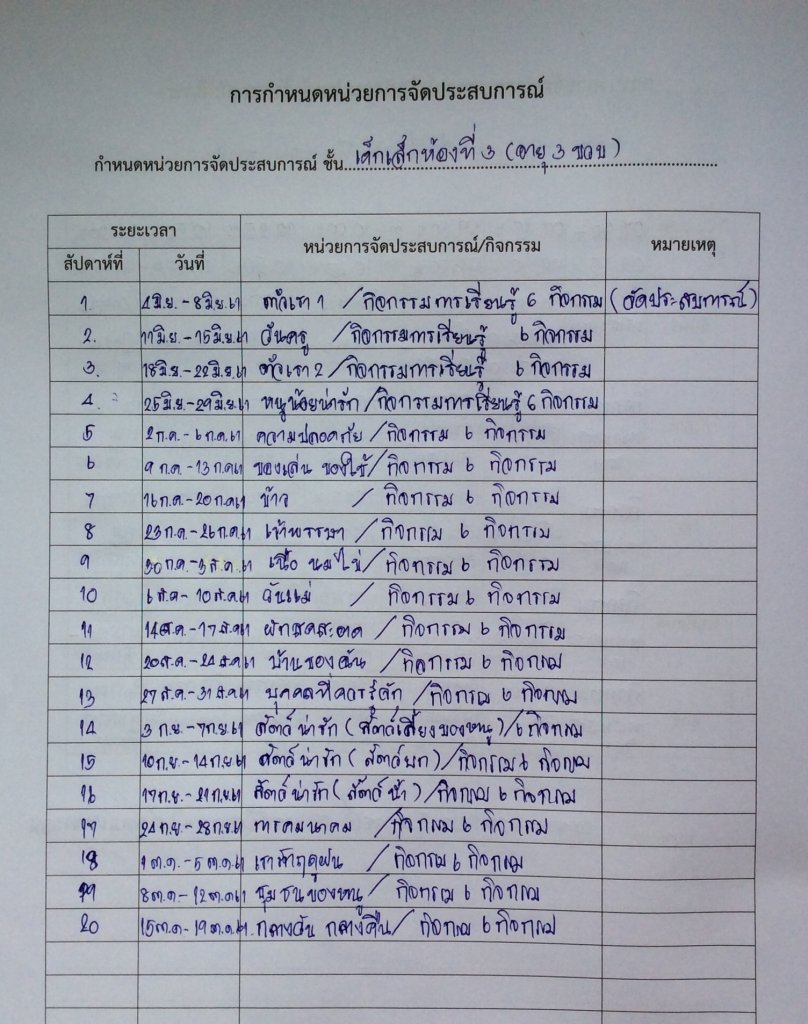 การกำหนดหน่วยการจัดประสบการณ์
กำหนดหน่วยการจัดประสบการณ์ ชั้น เด็กเล็กห้องที่ 3 (อายุ 3 ขวบ)
ระยะเวลา หน่วยการจัดประสบการณ์/กิจกรรม หมายเหตุ
สัปดาห์ที่ วันที่
1. 4 มิ.ย. - 8 มิ.ย. 61 ตัวเรา 1 / กิจกรรมการเรียนรู้ 6 กิจกรรม (จัดประสบการณ์)
2. 11 มิ.ย. - 15 มิ.ย. 61 วันครู / กิจกรรมการเรียนรู้ 6 กิจกรรม
3. 18 มิ.ย. - 22 มิ.ย. 61 ตัวเรา 2 / กิจกรรมการเรียนรู้ 6 กิจกรรม
4. 25 มิ.ย. - 29 มิ.ย. 61 หนูน้อยน่ารัก / กิจกรรมการเรียนรู้ 6 กิจกรรม
5 2 ก.ค. - 6 ก.ค. 61 ความปลอดภัย / กิจกรรม 6 กิจกรรม
6 9 ก.ค. - 13 ก.ค. 61 ของเล่น ของใช้ / กิจกรรม 6 กิจกรรม
7 16 ก.ค. - 20 ก.ค. 61 ข้าว / กิจกรรม 6 กิจกรรม
8 23 ก.ค. - 26 ก.ค. 61 เข้าพรรษา / กิจกรรม 6 กิจกรรม
9 30 ก.ค. - 3 ส.ค. 61 เนื้อ นม ไข่ / กิจกรรม 6 กิจกรรม
10 6 ส.ค. - 10 ส.ค. 61 วันแม่ / กิจกรรม 6 กิจกรรม
11 14 ส.ค. - 17 ส.ค. 61 ผักสดสะอาด / กิจกรรม 6 กิจกรรม
12 20 ส.ค. - 24 ส.ค. 61 บ้านของฉัน / กิจกรรม 6 กิจกรรม
13 27 ส.ค. - 31 ส.ค. 61 บุคคลที่ควรรู้จัก / กิจกรรม 6 กิจกรรม
14 3 ก.ย. - 7 ก.ย. 61 สัตว์น่ารัก (สัตว์เลี้ยงของหนู) / 6 กิจกรรม
15 10 ก.ย. - 14 ก.ย. 61 สัตว์น่ารัก (สัตว์บก) / กิจกรรม 6 กิจกรรม
16 17 ก.ย. - 21 ก.ย. 61 สัตว์น่ารัก (สัตว์น้ำ) / กิจกรรม 6 กิจกรรม
17 24 ก.ย. - 28 ก.ย. 61 การคมนาคม / กิจกรรม 6 กิจกรรม
18 1 ต.ค. - 5 ต.ค. 61 / กิจกรรม 6 กิจกรรม
19 8 ต.ค. - 12 ต.ค. 61 ชุมชนของหนู / กิจกรรม 6 กิจกรรม
20 15 ต.ค. - 19 ต.ค. 61 กลางวัน กลางคืน / กิจกรรม 6 กิจกรรม